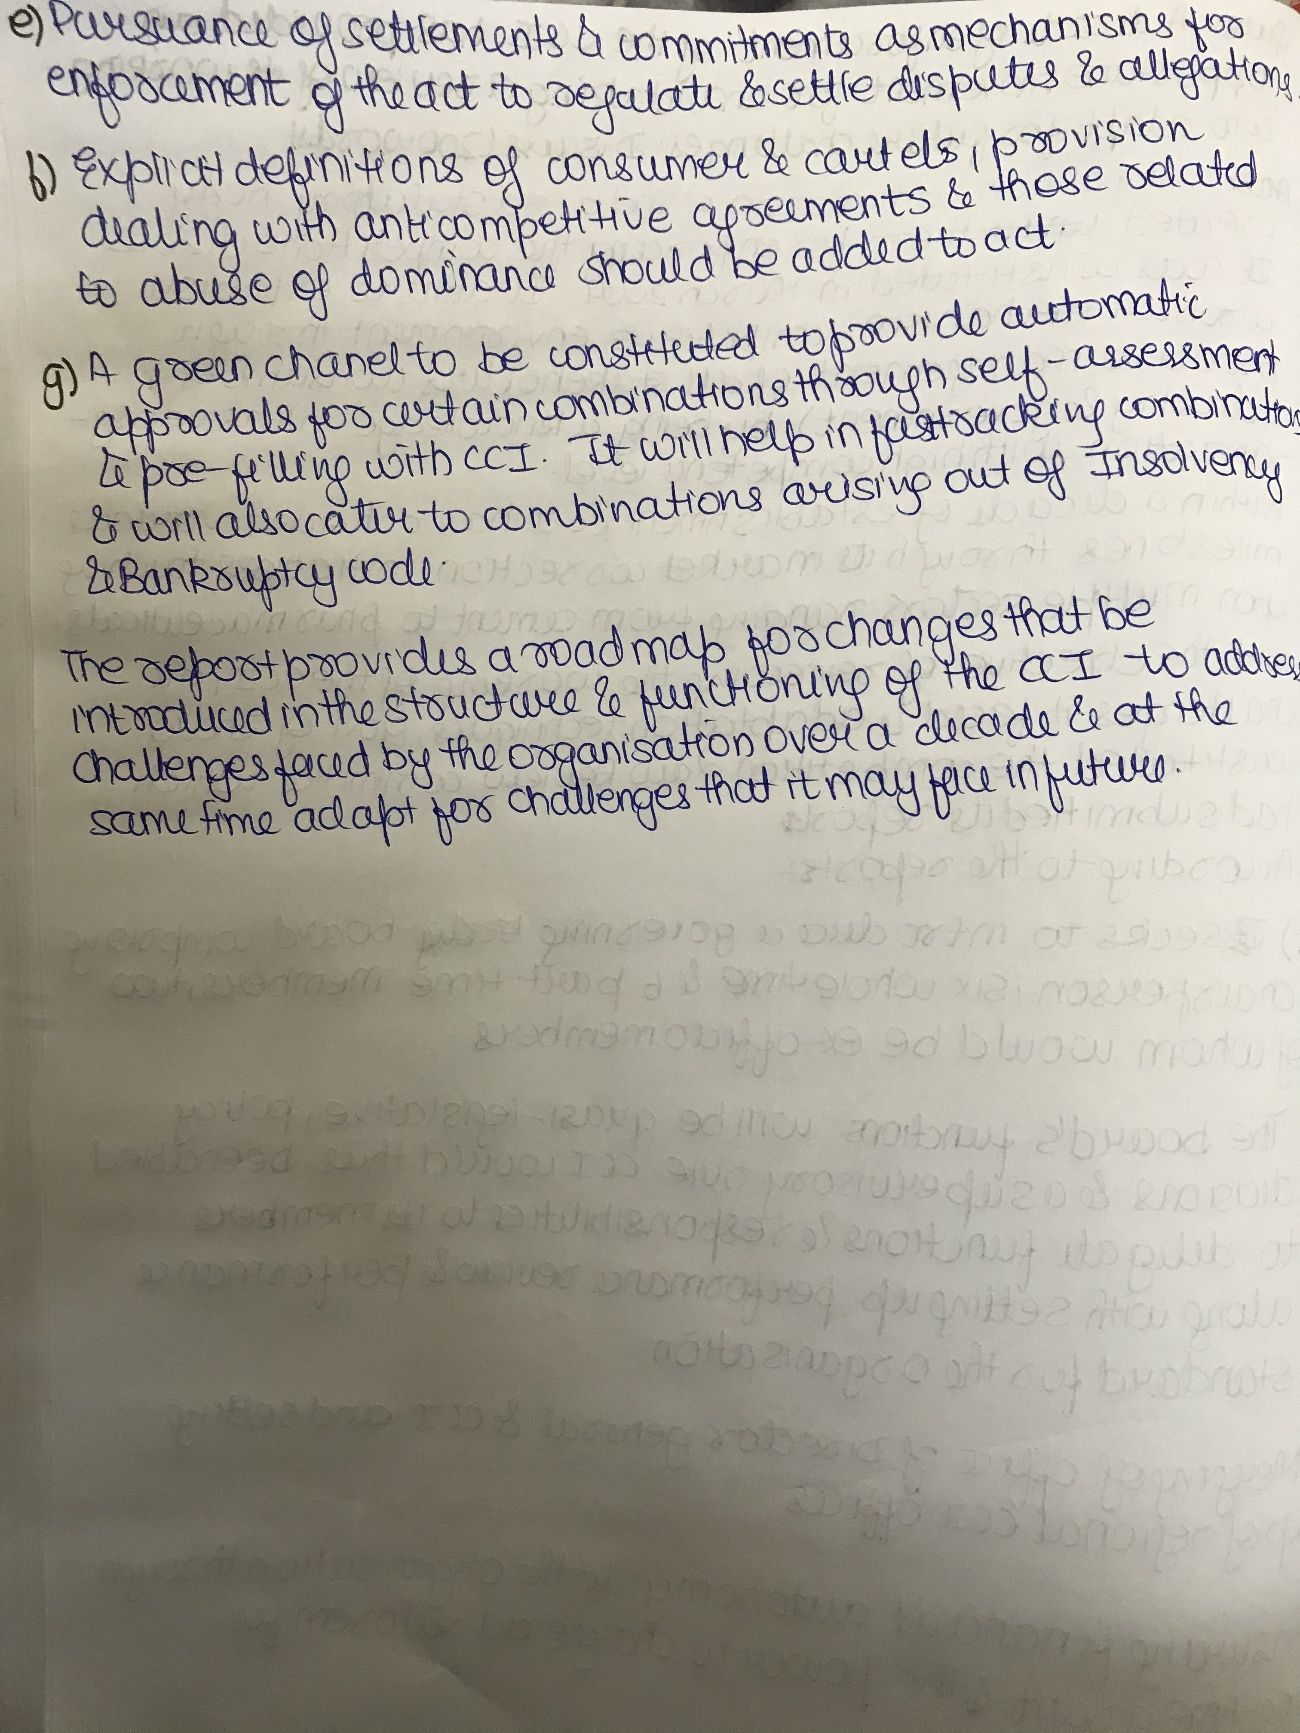 e) Pursuance of settlements & commitments as mechanisms for
enforcement of the act to regulate & settle disputes & allegations.
f) Explicit definitions of consumer & cartels, provision
dealing with anticompetitive agreements & those related
to abuse of dominance should be added to act.
g) A green chanel to be constituted to provide automatic
approvals for certain combinations through self-assessment
& pre-filling with CCI. It will help in fastracking combination
& will also cater to combinations arising out of Insolvency
& Bankruptcy code.
The report provides a roadmap for changes that be
introduced in the structure & functioning of the CCI to address
challenges faced by the organisation over a decade & at the
same time adapt for challenges that it may face in future.